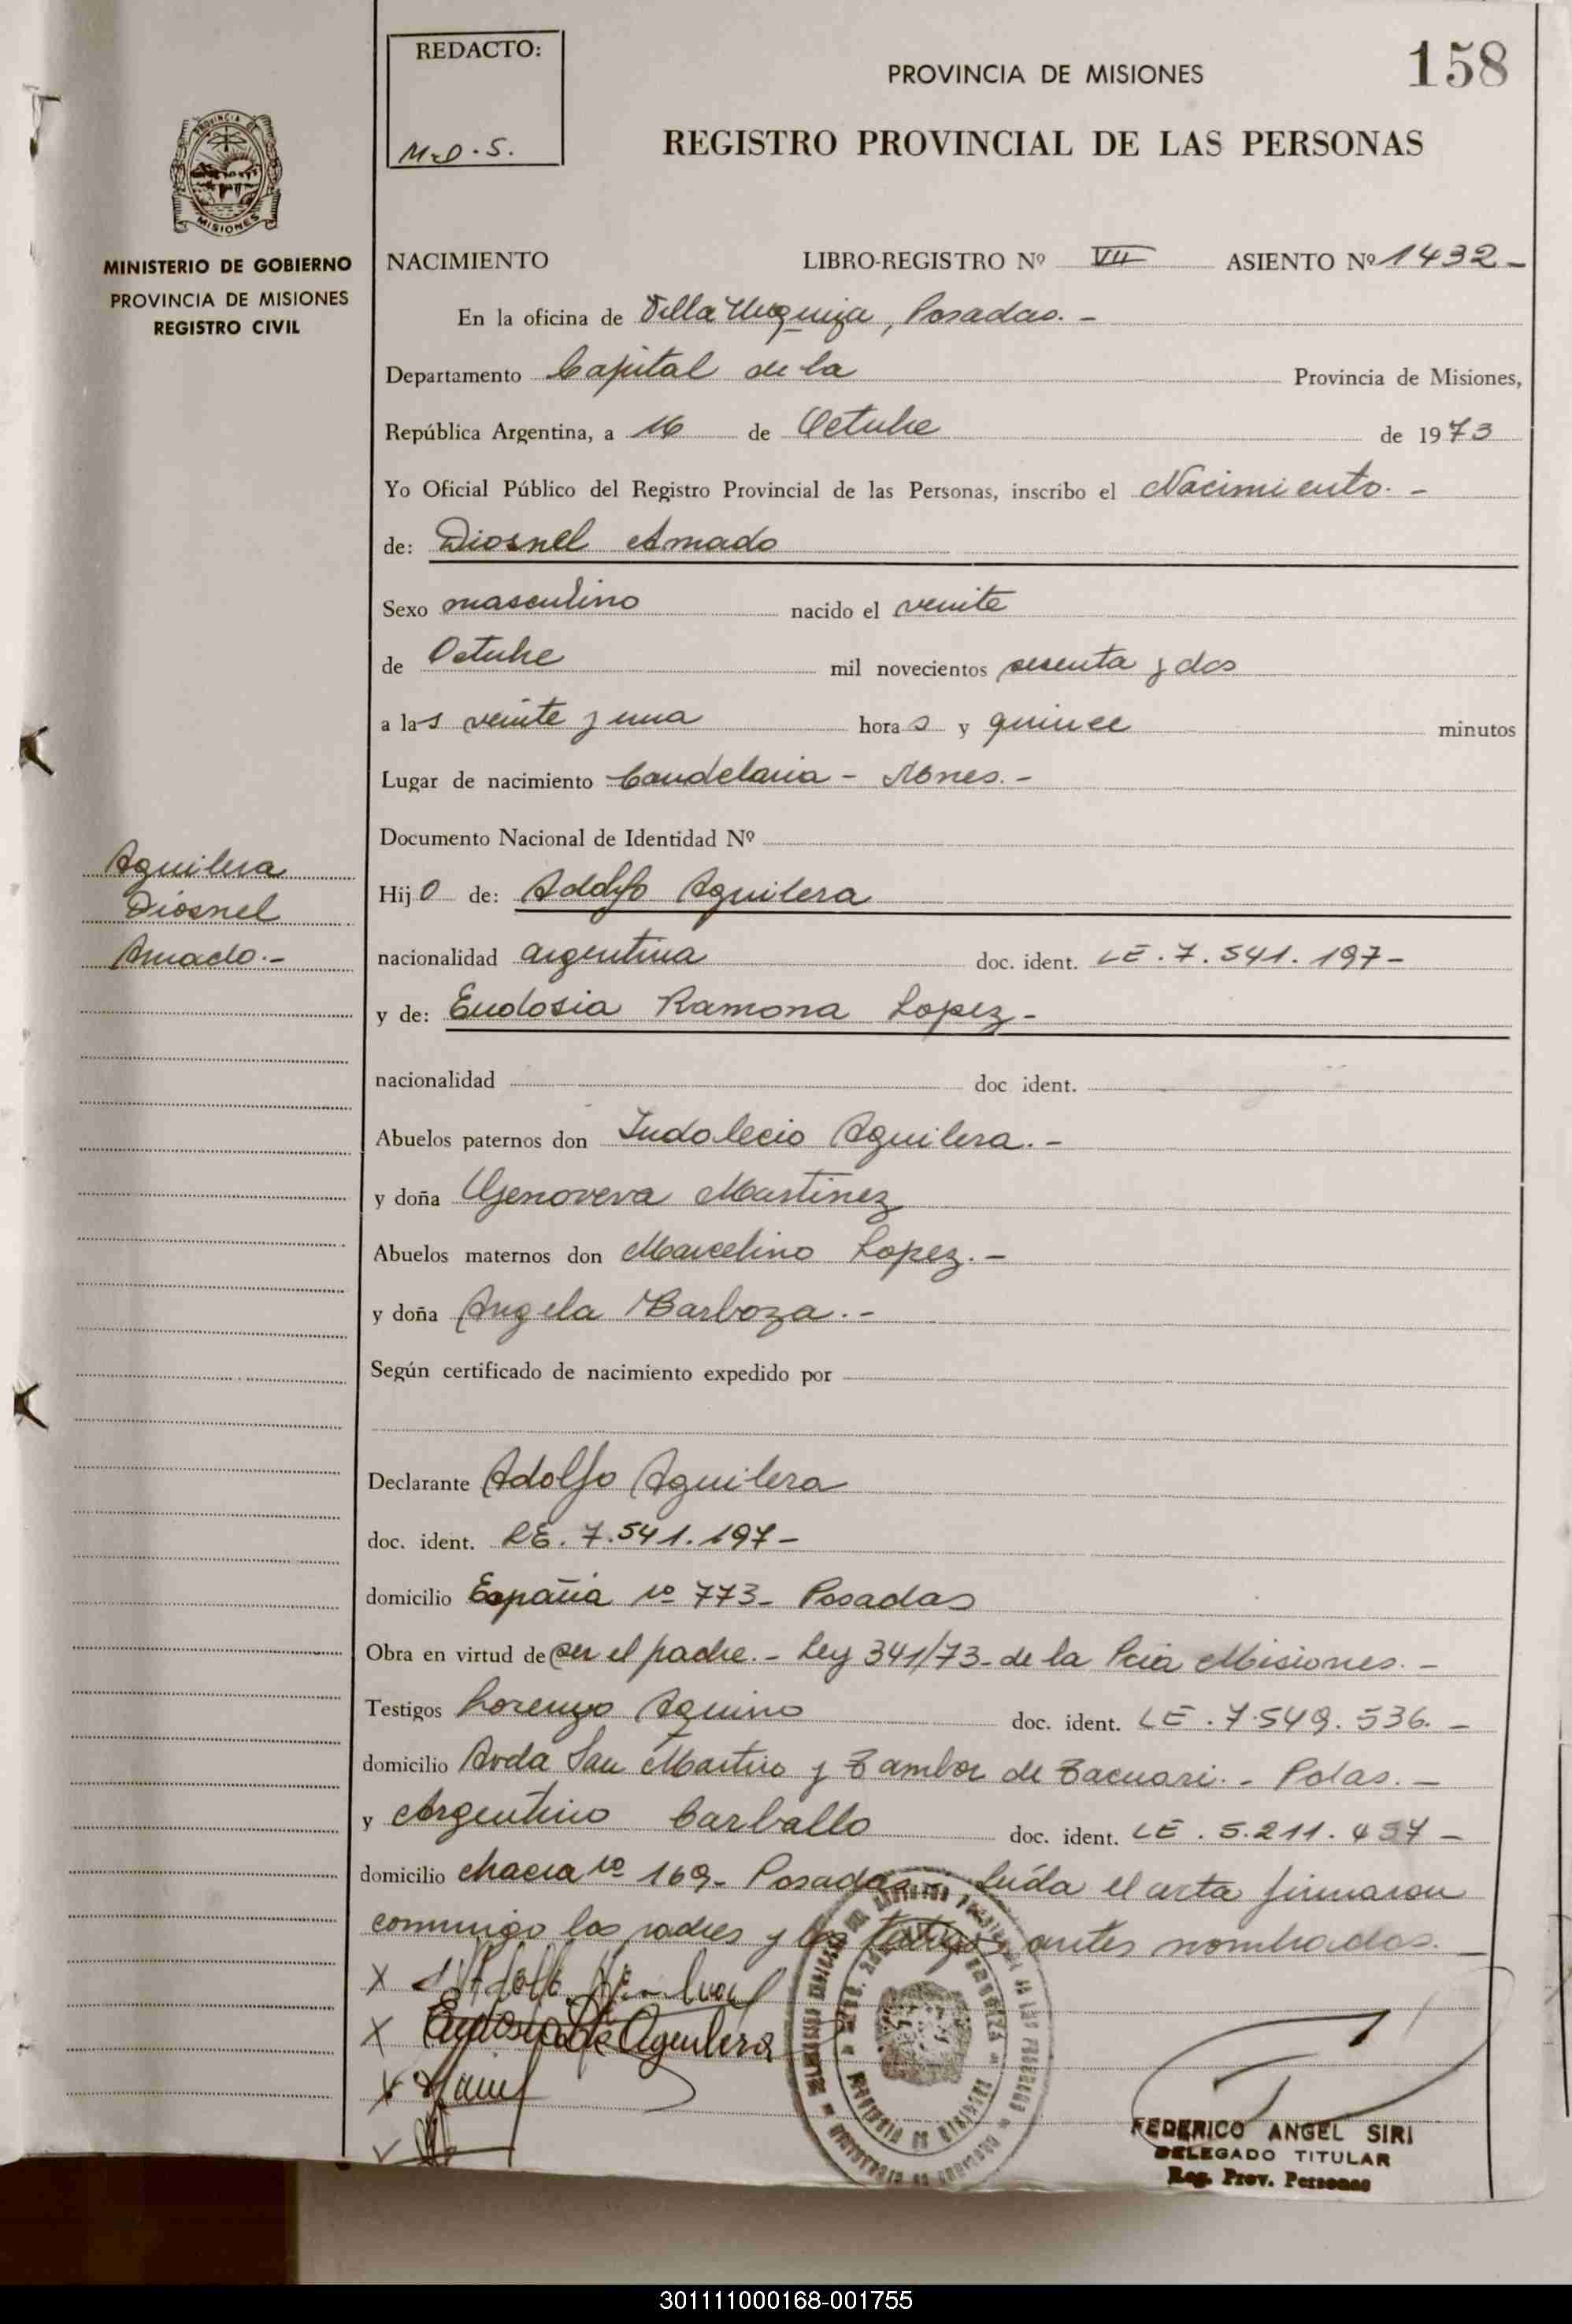 REDACTO:
M.D.S.
PROVINCIA DE MISIONES
158
REGISTRO PROVINCIAL DE LAS PERSONAS
PROVINCIA DE
MISIONES
MINISTERIO DE GOBIERNO
PROVINCIA DE MISIONES
REGISTRO CIVIL
NACIMIENTO LIBRO-REGISTRO Nº VII ASIENTO Nº 1432-
En la oficina de Villa Urquiza, Posadas.-
Departamento Capital de la Provincia de Misiones,
República Argentina, a 16 de Octubre de 1973
Yo Oficial Público del Registro Provincial de las Personas, inscribo el Nacimiento.-
de: Diosnel Amado
Sexo masculino nacido el veinte
de Octubre mil novecientos sesenta y dos
a las veinte y una horas y quince minutos
Lugar de nacimiento Candelaria - Mnes.-
Documento Nacional de Identidad Nº
Aguilera
Diosnel
Amado.-
Hijo de: Adolfo Aguilera
nacionalidad argentina doc. ident. LE. 7.541.197-
y de: Eudosia Ramona Lopez-
nacionalidad doc ident.
Abuelos paternos don Indalecio Aguilera.-
y doña Genoveva Martinez
Abuelos maternos don Marcelino Lopez.-
y doña Angela Barboza.-
Según certificado de nacimiento expedido por
Declarante Adolfo Aguilera
doc. ident. LE. 7.541.197-
domicilio España nº 773- Posadas
Obra en virtud de ser el padre.- Ley 341/73- de la Pcia Misiones.-
Testigos Lorenzo Aquino doc. ident. LE. 7.549.536.-
domicilio Avda San Martin y Tambor de Tacuari.- Pdas.-
y Argentino Carballo doc. ident. LE. 5.211.437-
domicilio chacra nº 169- Posadas- Leída el acta firmaron
conmigo los padres y los testigos antes nombrados.-
X
X Eudosia de Aguilera
X
FEDERICO ANGEL SIRI
DELEGADO TITULAR
Reg. Prov. Personas
301111000168-001755